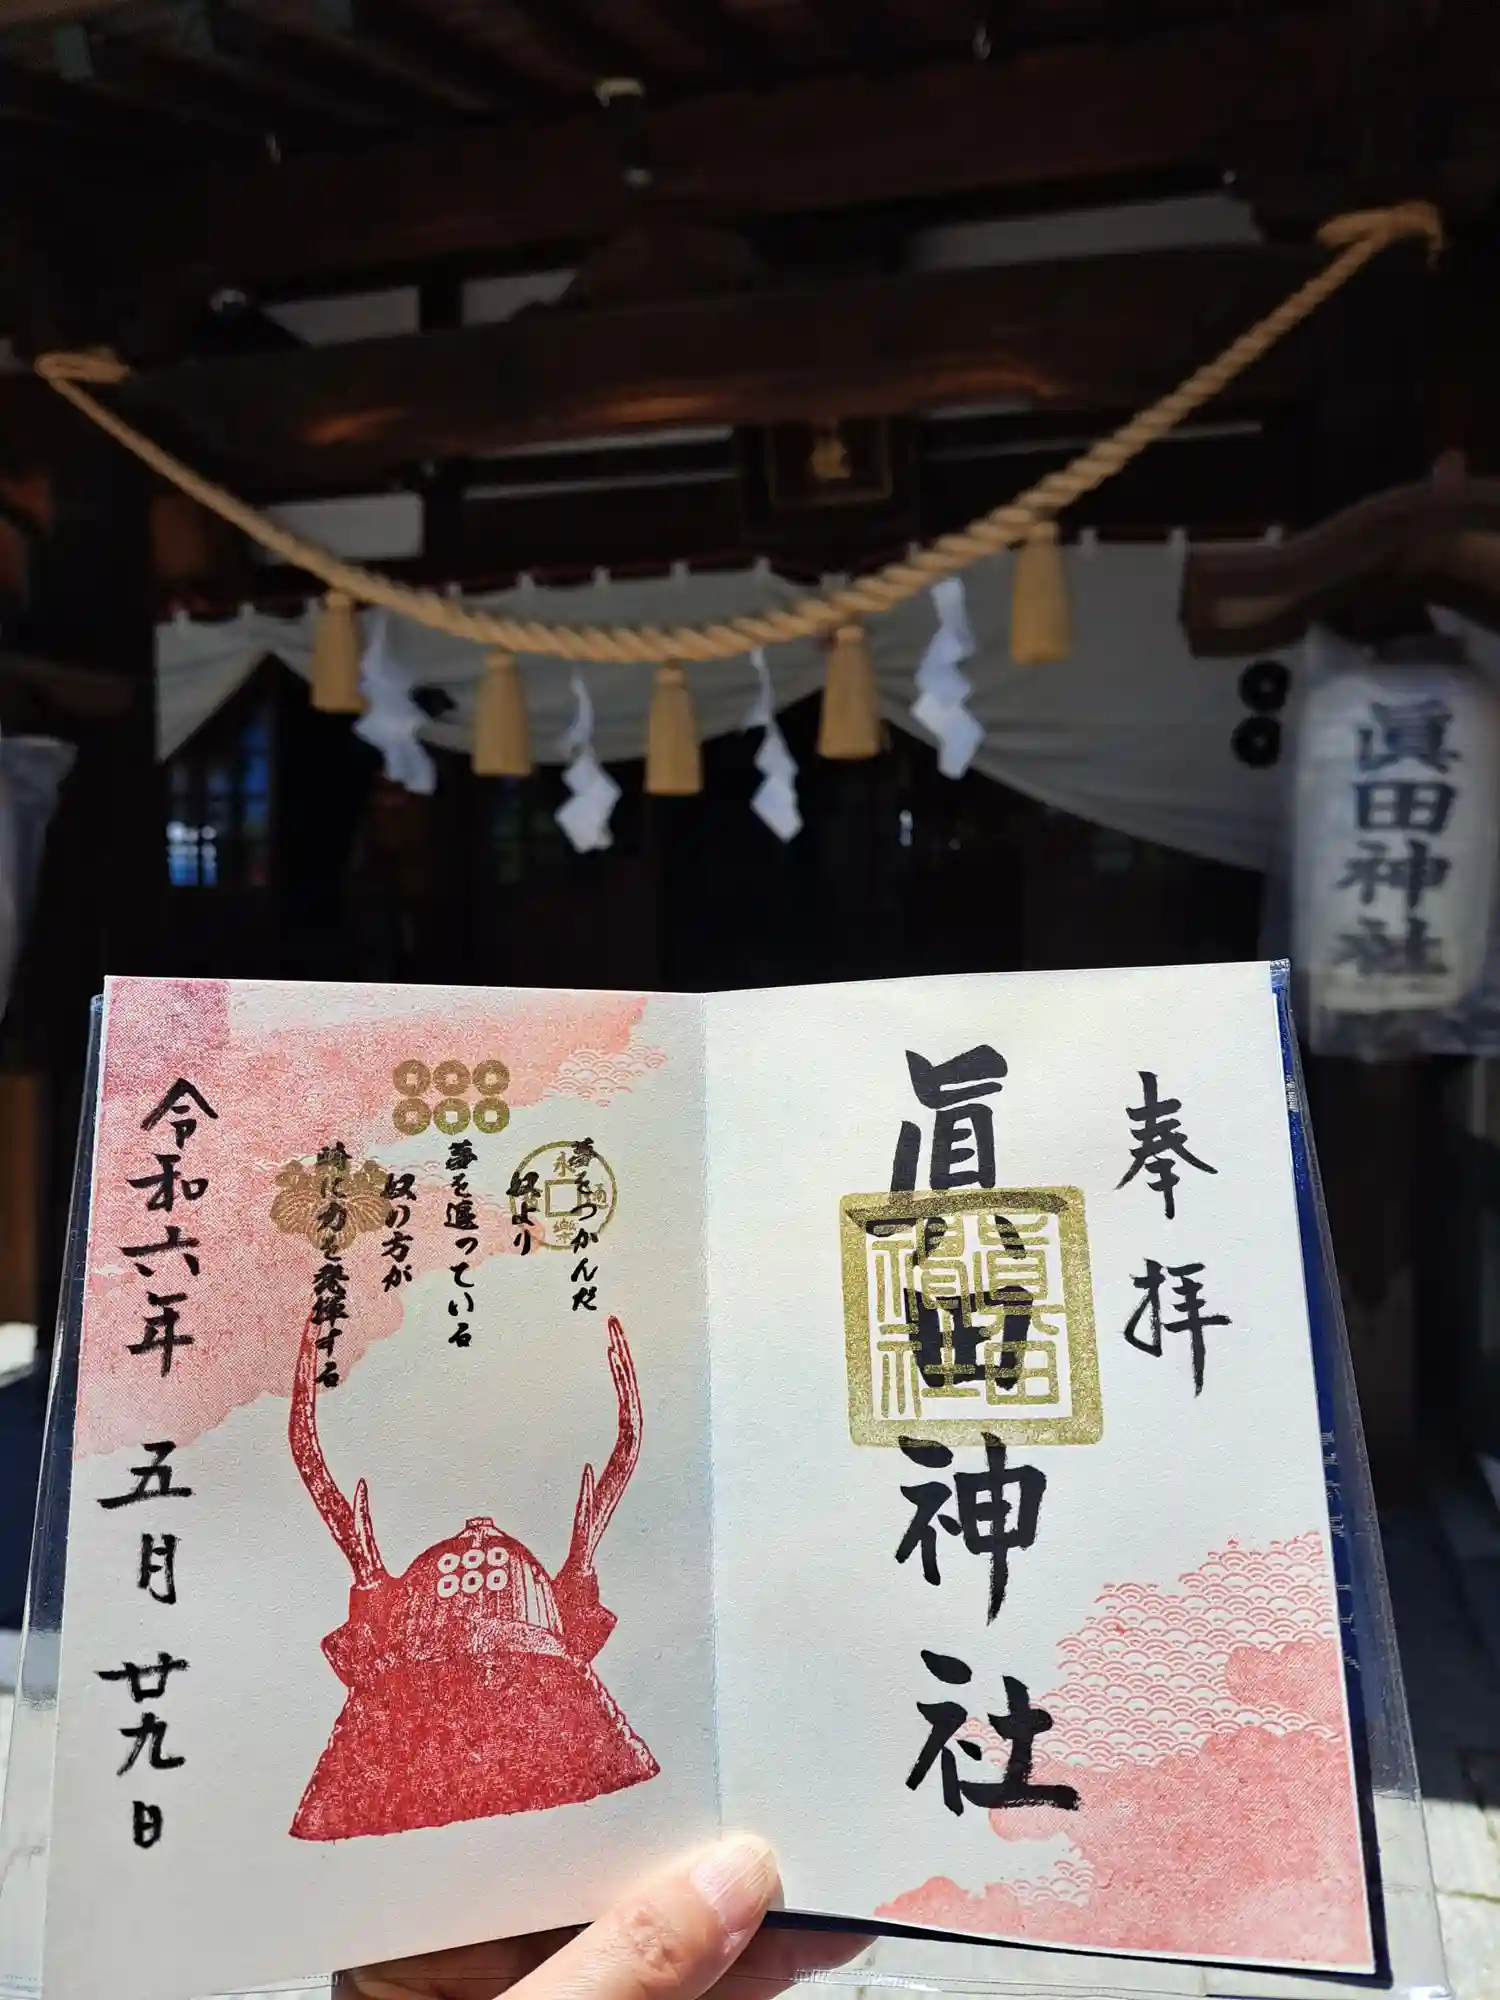 眞田神社
奉拝
眞田神社
眞田
神社
夢をつかんだ
奴より
夢を追っている
奴の方が
時に力を発揮する
永樂通
令和六年 五月 廿九日